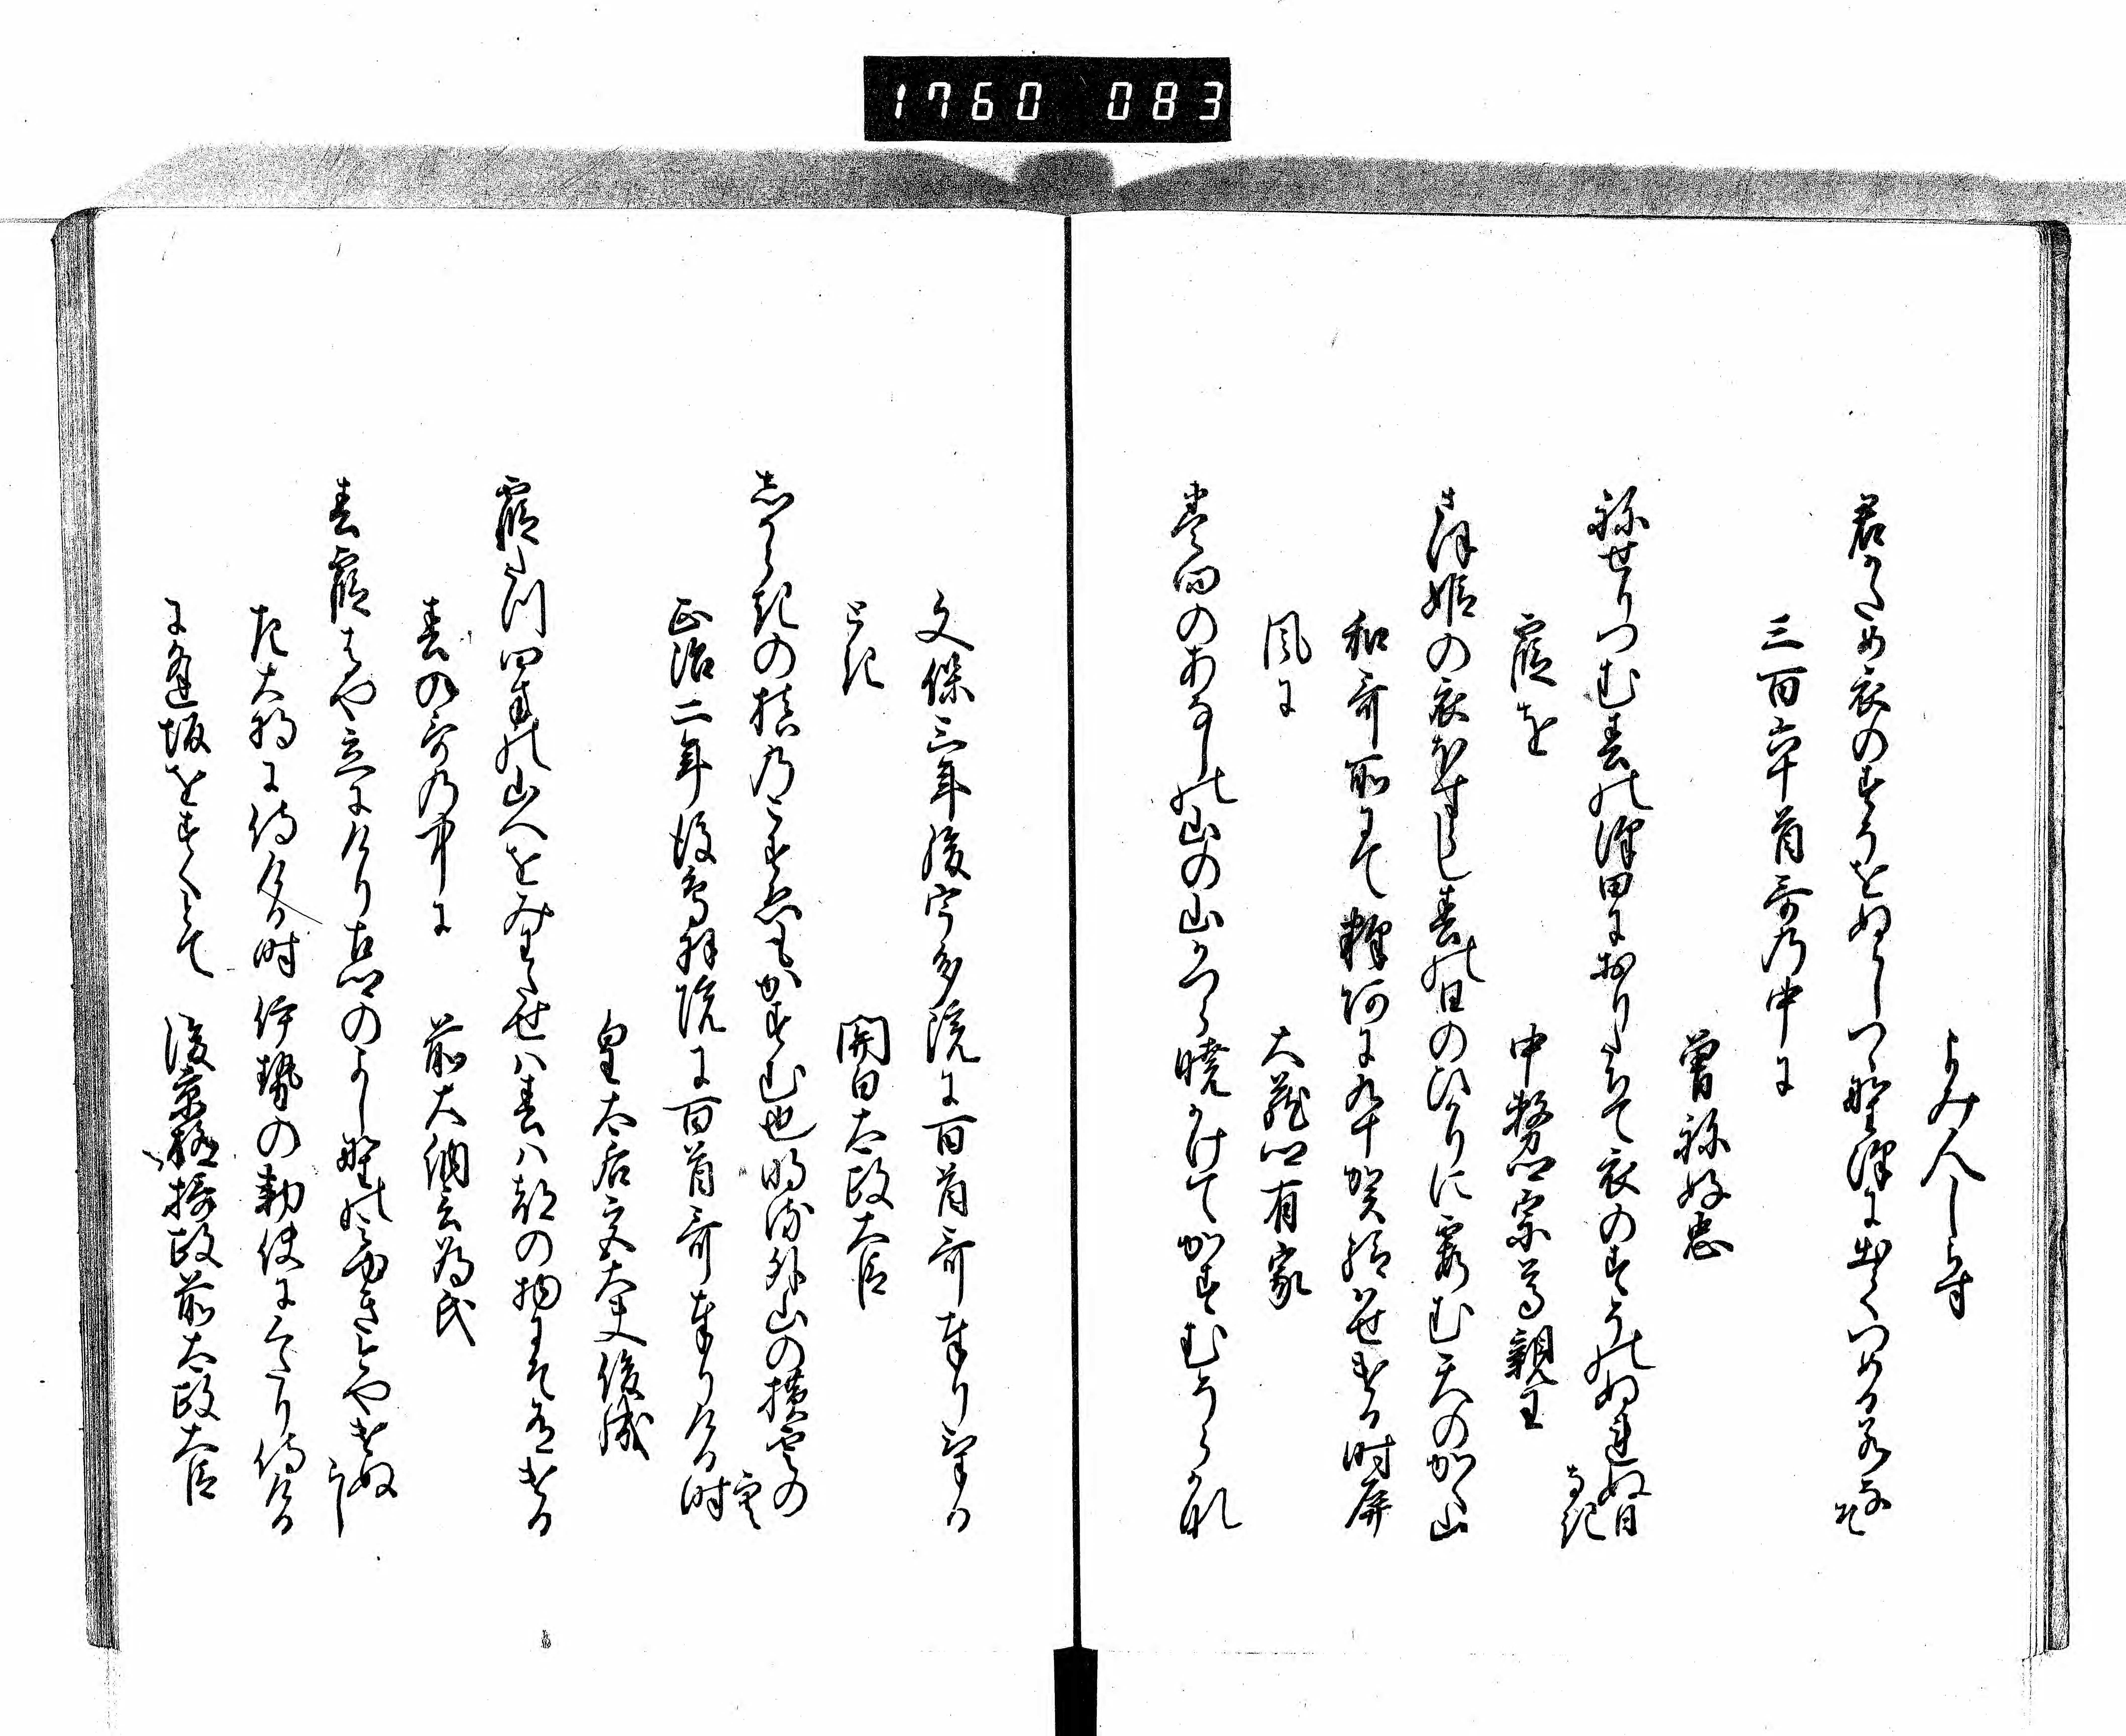 1760 083
よみ人しらす
君かため衣のすそをぬらしつゝ野沢に出てつめる若なそ
三百六十首哥乃中に
曽祢好忠
祢せりつむ春の沢田におりたちて衣のすそのぬれぬ日
そなき
霞を
中務卿宗尊親王
さほ姫の衣ほすらし春の日のひかりに霞む天のかく山
和哥所にて釈阿に九十賀給はせける時屏
風に
大蔵卿有家
巻向のあなしの山の山かつら暁かけてかすむうら
文保三年後宇多院に百首哥奉りける
とき
関白太政大臣
しからきの槙乃こすゑもかすむ也外山の横雲の
雲
正治二年後鳥羽院に百首哥奉りける時
皇太后宮大夫俊成
霞たつ四方の山へをみわたせは春は都の物にそ有ける
春の哥乃中に
前大納言為氏
春霞はや立にけり古郷のよし野のみゆき今やけぬ
らし
左大将に侍ける時伊勢の勅使にくたり侍ける
に逢坂をすくとて
後京極摂政前太政大臣